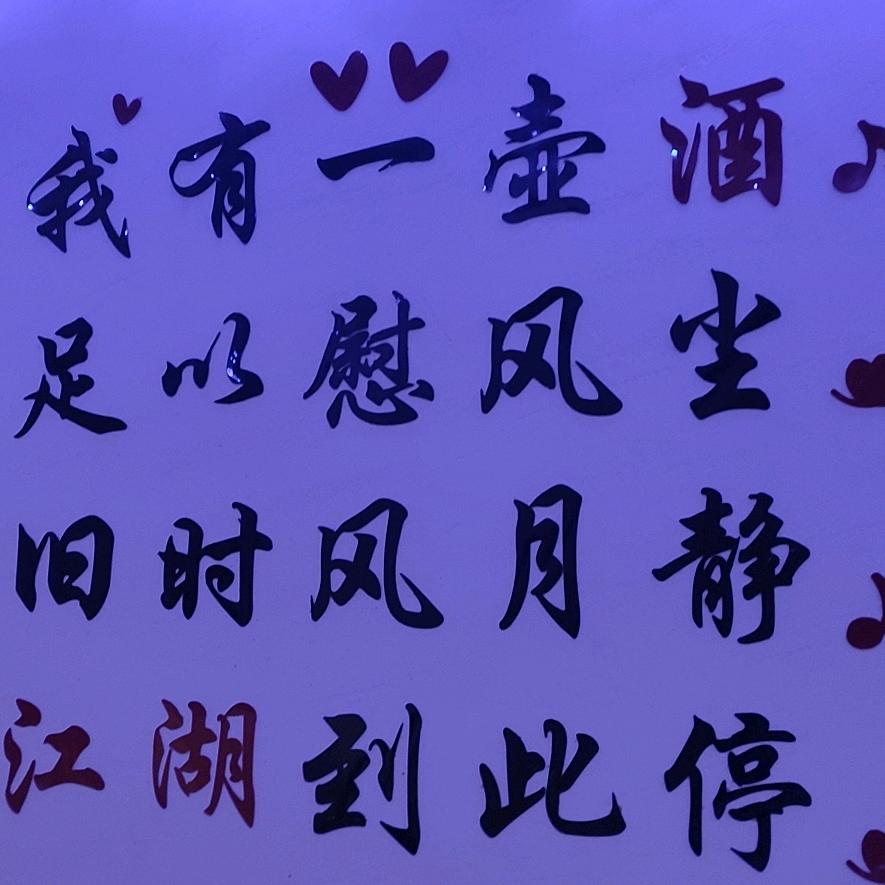 我有一壶酒
足以慰风尘
旧时风月静
江湖到此停